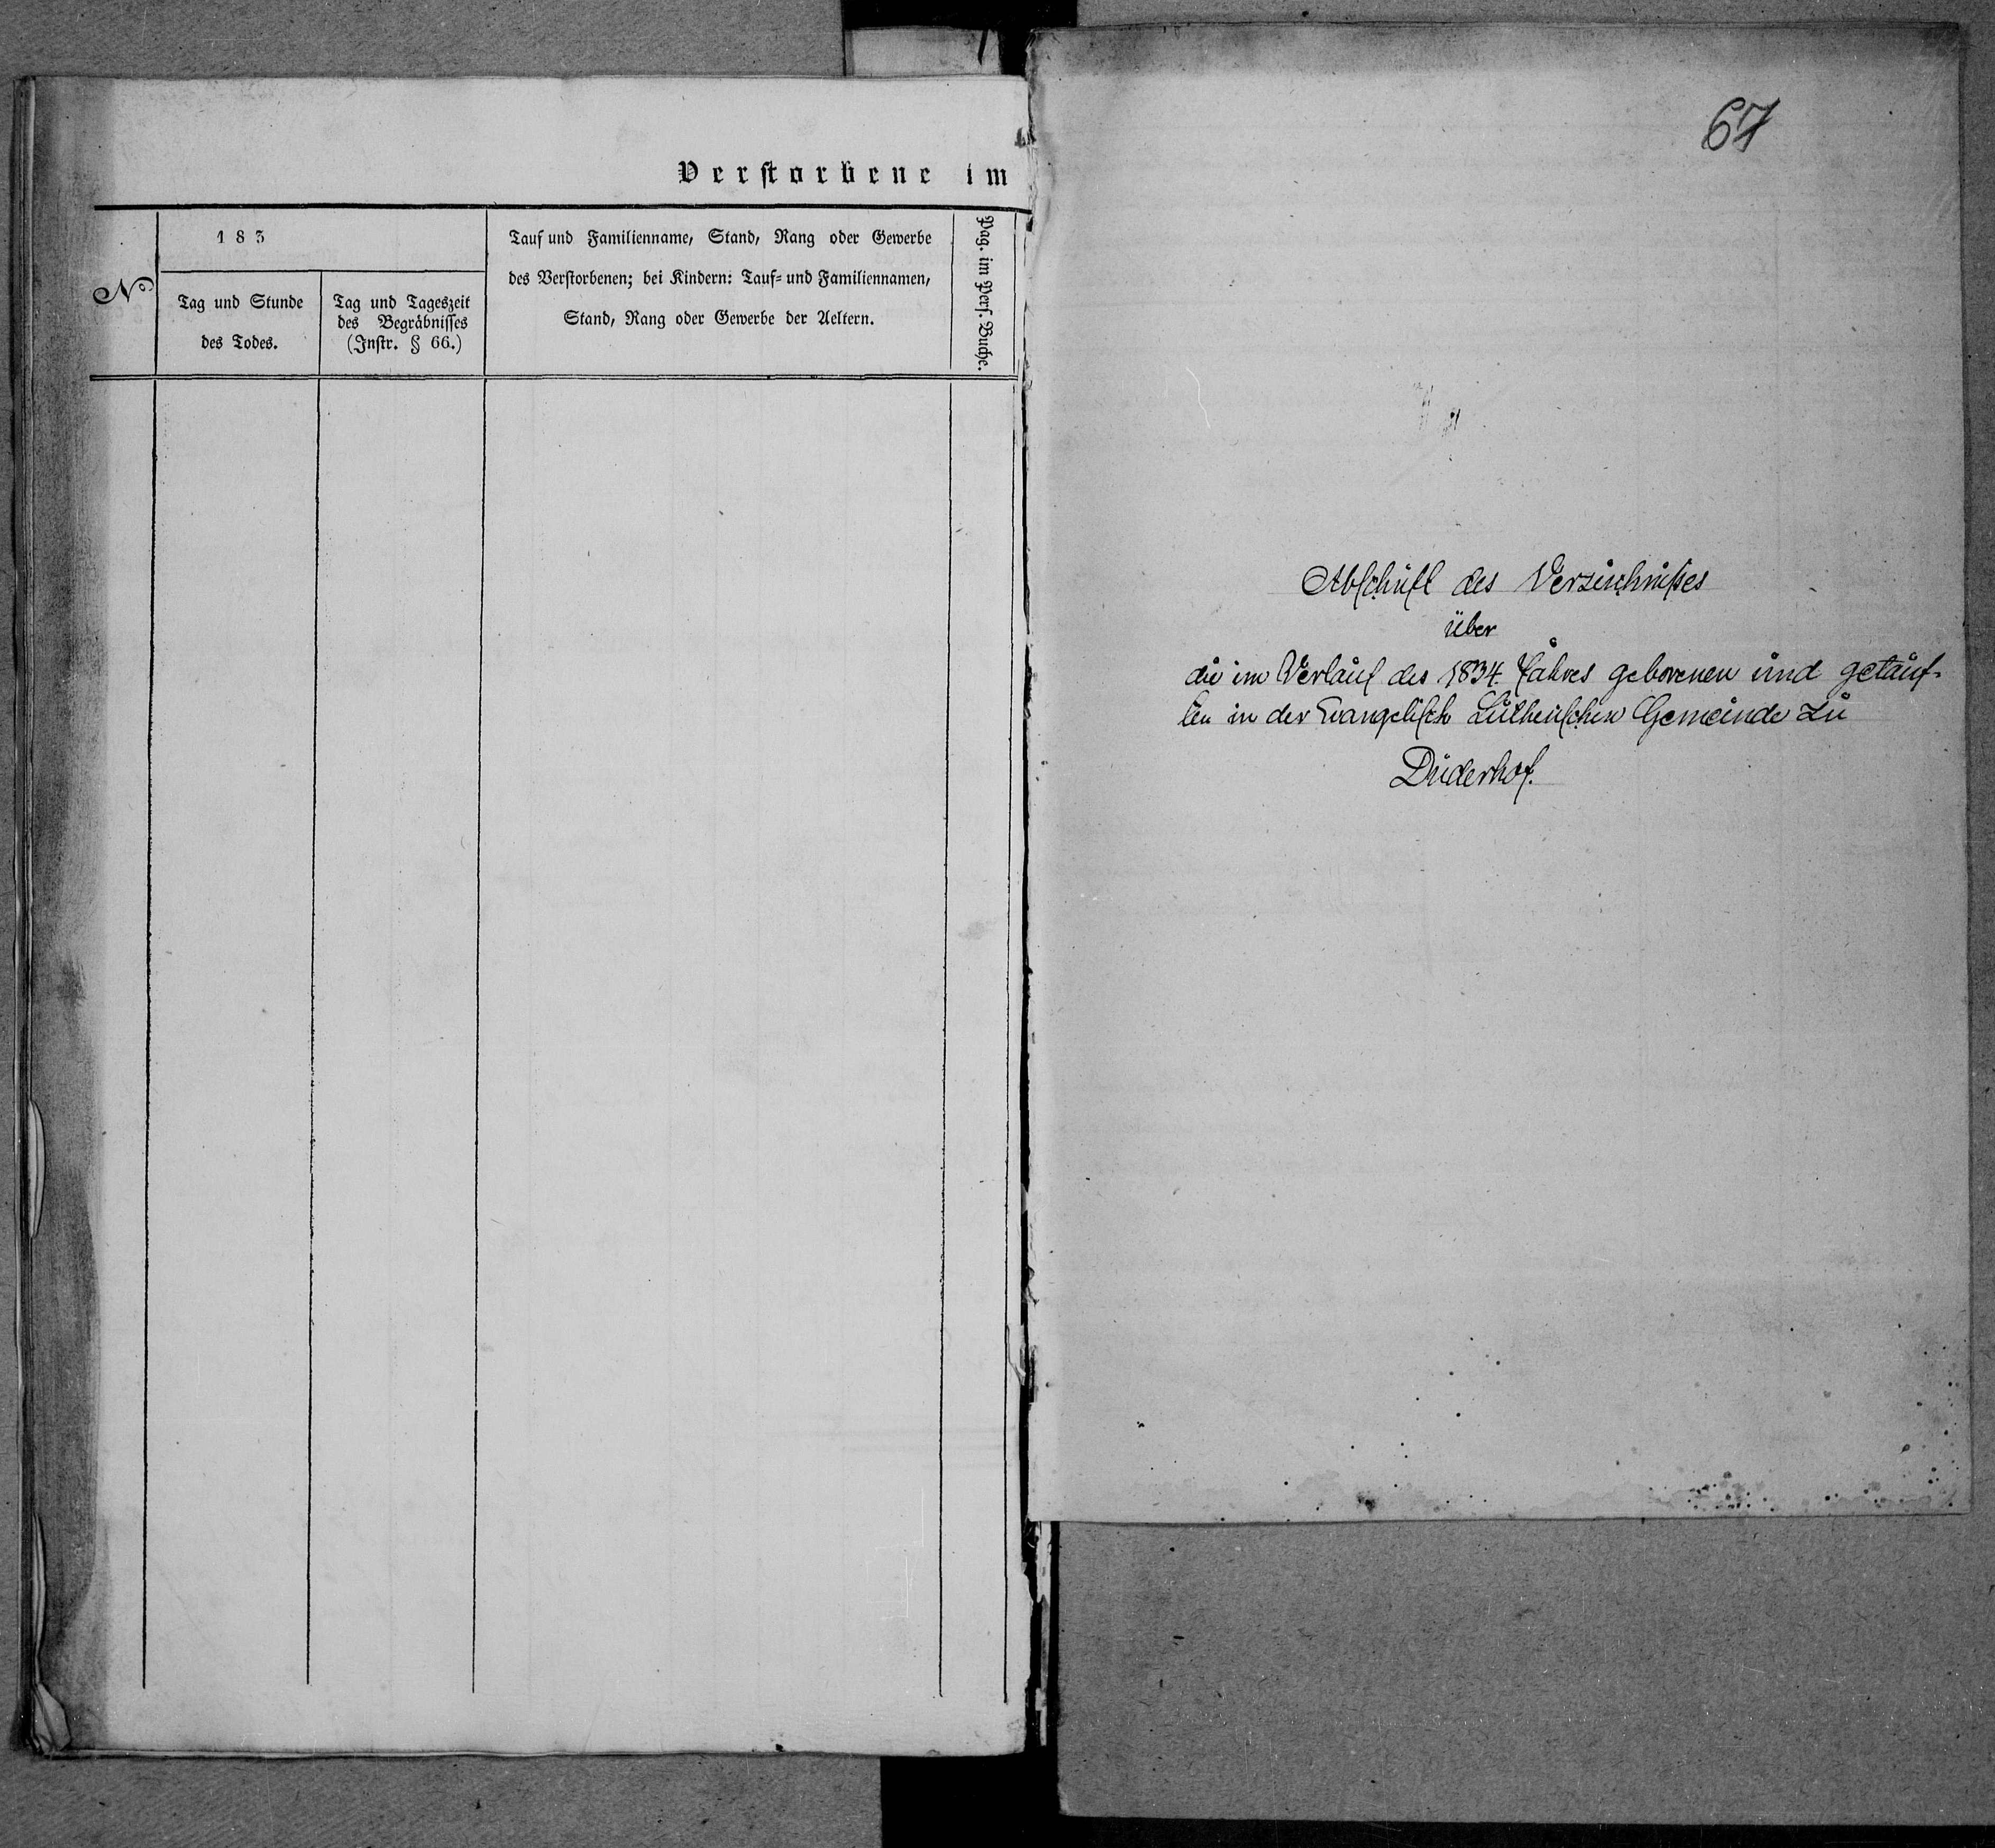 Verstorbene im
No
183
Tag und Stunde
des Todes.
Tag und Tageszeit
des Begräbnisses
(Instr. § 66.)
Tauf und Familienname, Stand, Rang oder Gewerbe
des Verstorbenen; bei Kindern: Tauf- und Familiennamen,
Stand, Rang oder Gewerbe der Aeltern.
Pag. im Pers. Buche.
67
Abschrift des Verzeichnißes
über
die im Verlauf des 1834. Jahres geborenen und getauf-
ten in der Evangelisch Lutherischen Gemeinde zu
Duderhof.